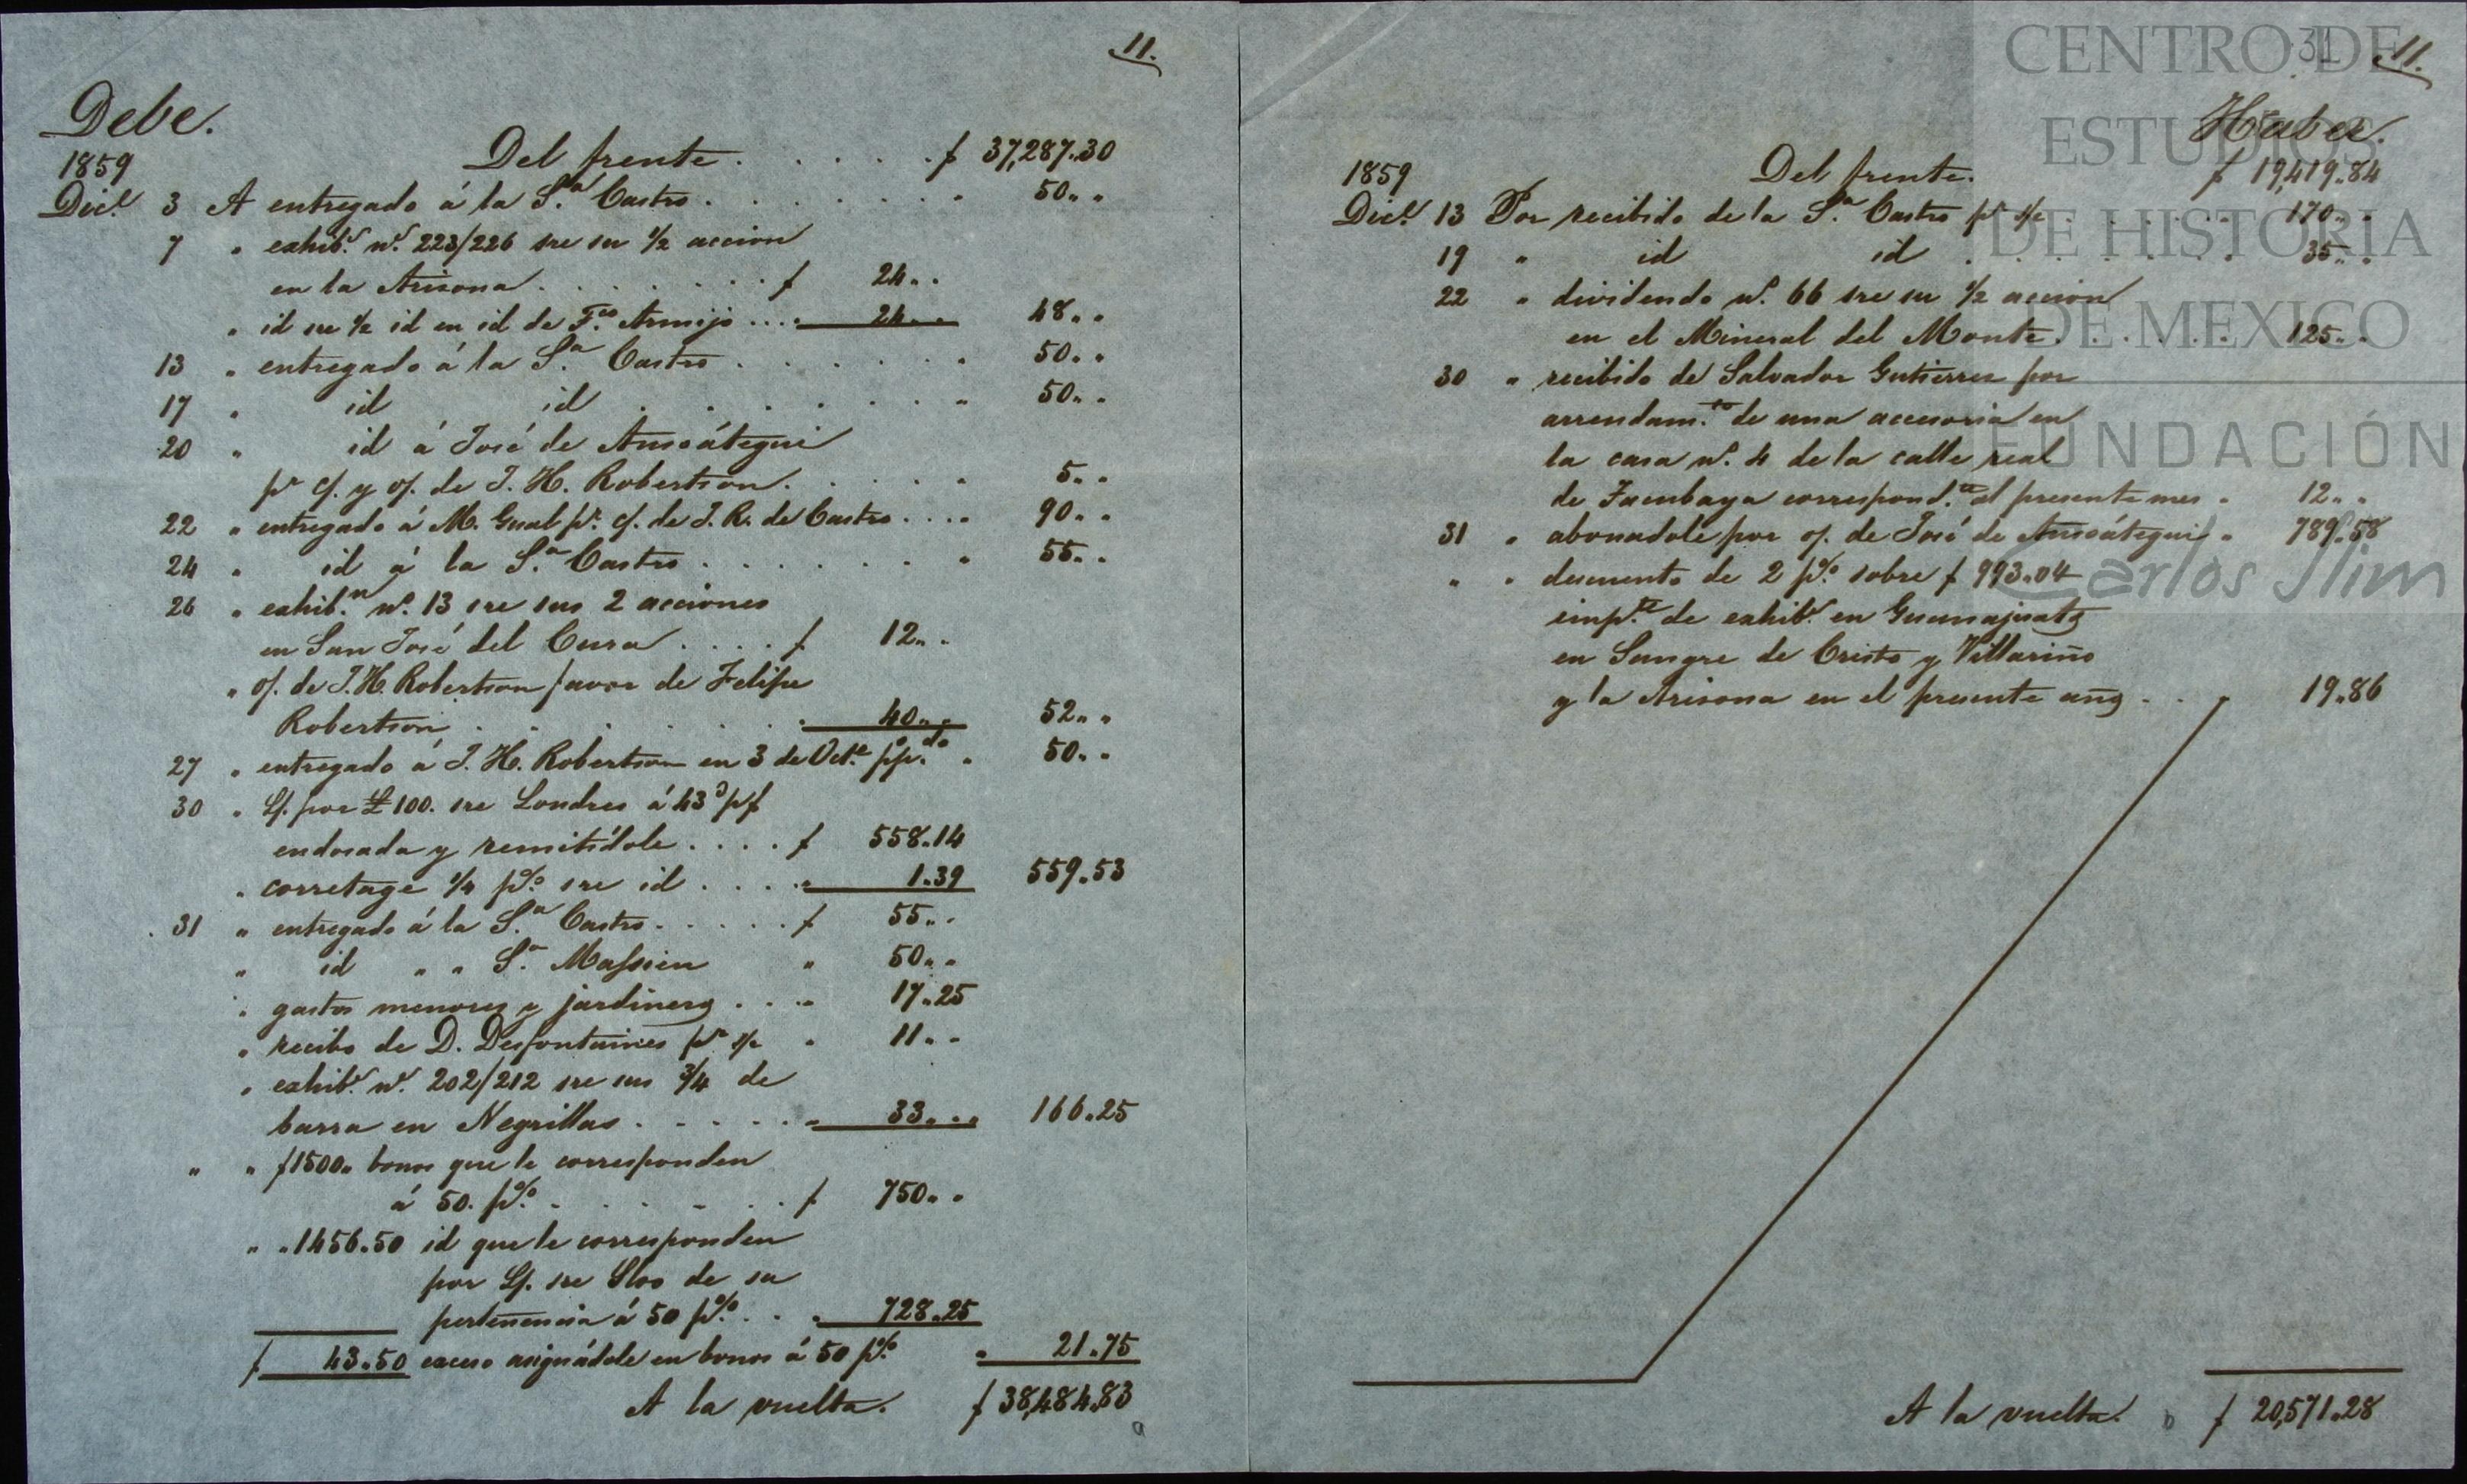 11.
Debe.
Del frente . . . . . . $ 37,287.30
1859
Dice. 3 A entregado á la Sa. Castro . . . . . . . . " 50.. .
7 " exhibs. ns. 223/226 sre su 1/2 accion
en la Arizona . . . . . . . $ 24.. .
" id sre 1/2 id en id de Fco. Armijo . . . " 24.. . 48.. .
13 " entregado á la Sa. Castro . . . . . . . " 50.. .
17 " id id . . . . . . . " 50.. .
20 " id á José de Ansoátegui
pr. c/. y o/. de J. H. Robertson . . . . . " 5.. .
22 " entregado á M. Gual pr. c/. de J. R. de Castro . . . " 90.. .
24 " id á la Sa. Castro . . . . . . . " 55.. .
26 " exhibn. no. 13 sre sus 2 acciones
en San José del Cura . . . . $ 12.. .
" o/. de J. H. Robertson favor de Felipe
Robertson . . . . . . . " 40.. . 52.. .
27 " entregado á J. H. Robertson en 3 de Octe. ppdo. " 50.. .
30 " L/. por £ 100. sre Londres á 43d p$
endosada y remitídole . . . . $ 558.14
" corretage 1/4 p%. sre id . . . . " 1.39 559.53
31 " entregado á la Sa. Castro . . . . . $ 55.. .
" id " " Sa. Massieu " 50.. .
" gastos menores y jardinero . . . " 17.25
" recibo de D. Desfontaines pr. s/c " 11.. .
" exhibs. ns. 202/212 sre sus 3/4 de
barra en Negrillas . . . . . . " 33.. . 166.25
" " $1500.. bonos que le corresponden
á 50. p%. . . . . . . $ 750.. .
" " 1456.50 id que le corresponden
por L/. sre Slos de su
pertenencia á 50 p%. . . " 728.25
$ 43.50 exceso asignádole en bonos á 50 p%. " 21.75
A la vuelta. $ 38,484.83
a
31 11.
Haber.
Del frente. $ 19,419.84
1859
Dice. 13 Por recibido de la Sa. Castro pr. s/c . . . . . . 170.. .
19 " id id . . . . . . . . 35.. .
22 " dividendo no. 66 sre su 1/2 accion
en el Mineral del Monte . . . . . . 125.. .
30 " recibido de Salvador Gutierrez por
arrendamto. de una accesoria en
la casa no. 4 de la calle real
de Tacubaya correspondte. al presente mes " 12.. .
31 " abonadole por o/. de José de Ansoátegui " 789.58
" " descuento de 2 p%. sobre $ 993.04
impte. de exhibs. en Guanajuato
en Sangre de Cristo y Villariño
y la Arizona en el presente año . . " 19.86
A la vuelta. b $ 20,571.28
CENTRO DE
ESTUDIOS
DE HISTORIA
DE MEXICO
FUNDACIÓN
Carlos Slim